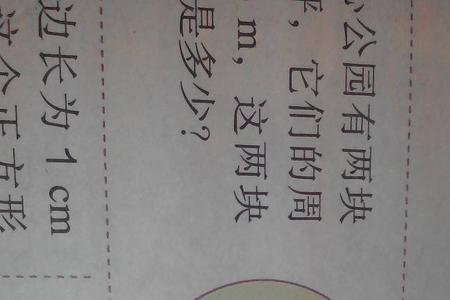 公园有两块
，它们的周
m，这两块
是多少？
边长为1 cm
个正方形